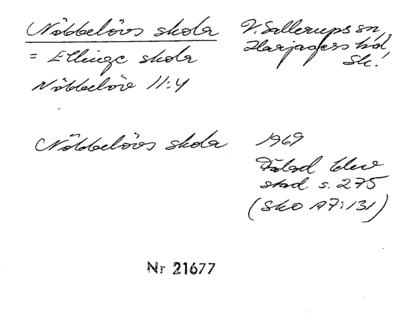 Nöbbelövs skola V. Sallerups sn,
= Ellinge skola Harjagers hd,
Nöbbelöv 11:4 Sk.
Nöbbelövs skola 1969
s. 275
(Sko A7:131)
Nr 21677